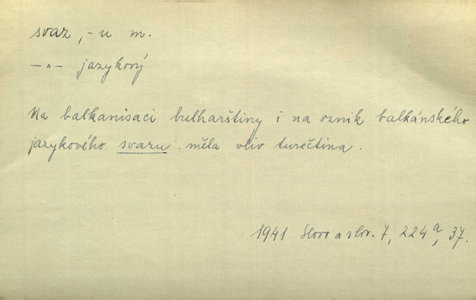 svaz, -u m.
—"— jazykový
Na balkanisaci bulharštiny i na vznik balkánského
jazykového svazu měla vliv turečtina.
1941 Slovo a slov. 7, 224a, 37.